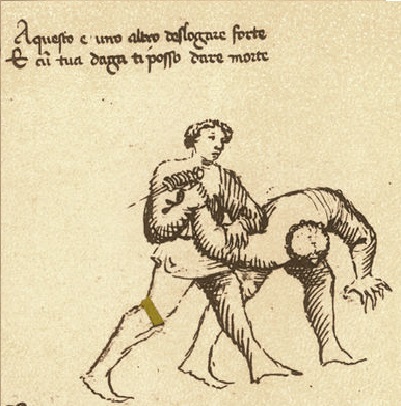 Aquesto e uno altro deslogare forte
E cũ tua daga ti posso dare morte